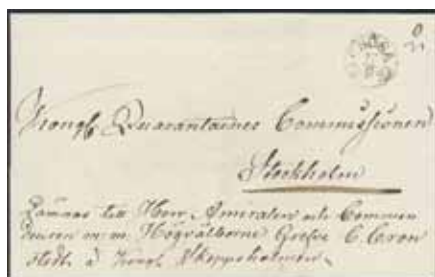 Kongl. Quarantaines Commissionen
Stockholm
Lämnas till Herr Amiralen och Comman
deuren m: m: Högvälborne Grefve C. Cron
stedt å Kongl Skeppsholmen